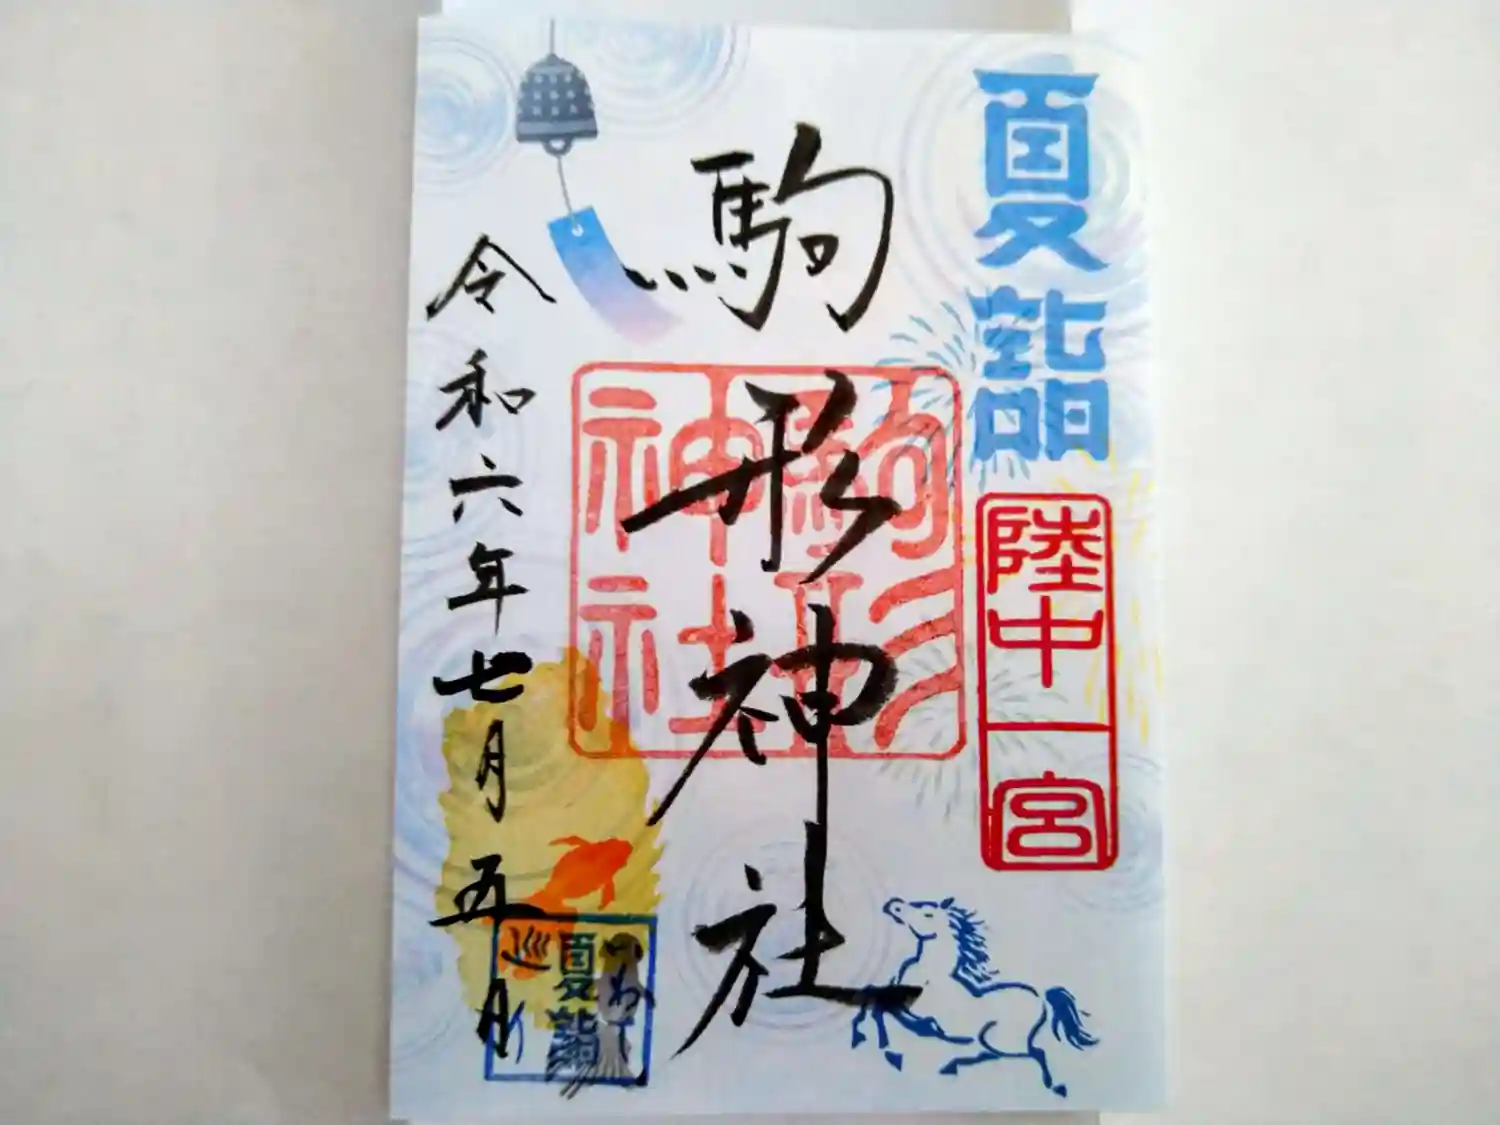 夏詣
陸中一宮
駒形神社
駒形
神社
令和六年七月五日
いわて
夏詣
巡り